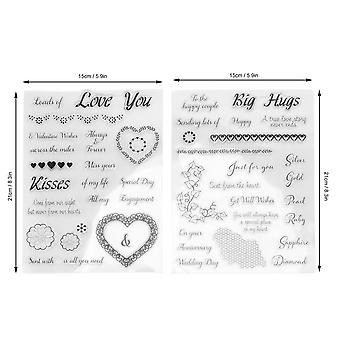 15cm / 5.9in
21cm / 8.3in
Loads of Love You
A Valentine Wishes
across the miles
Always
&
Forever
Miss your
Kisses of my life
Special Day
Gone from our sight
but never from our hearts
All my
Engagement
&
Sent with
is all you need
15cm / 5.9in
21cm / 8.3in
To the
happy couple
Big Hugs
Sending lots of
Happy
A true love story
never ends
Just for you
Sent from the heart
Get Well Wishes
You will always have
a special place
in my heart
Silver
Gold
Pearl
Ruby
On your
Anniversary
Wedding Day
Sapphire
Diamond